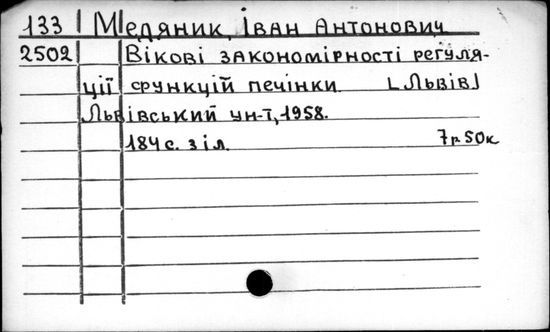 133 Медяник, Іван Антонович
2502 Вікові закономірності регуля-
ції функцій печінки [Львів]
Львівський ун-т, 1958.
184 с. з іл. 7 р. 50 к